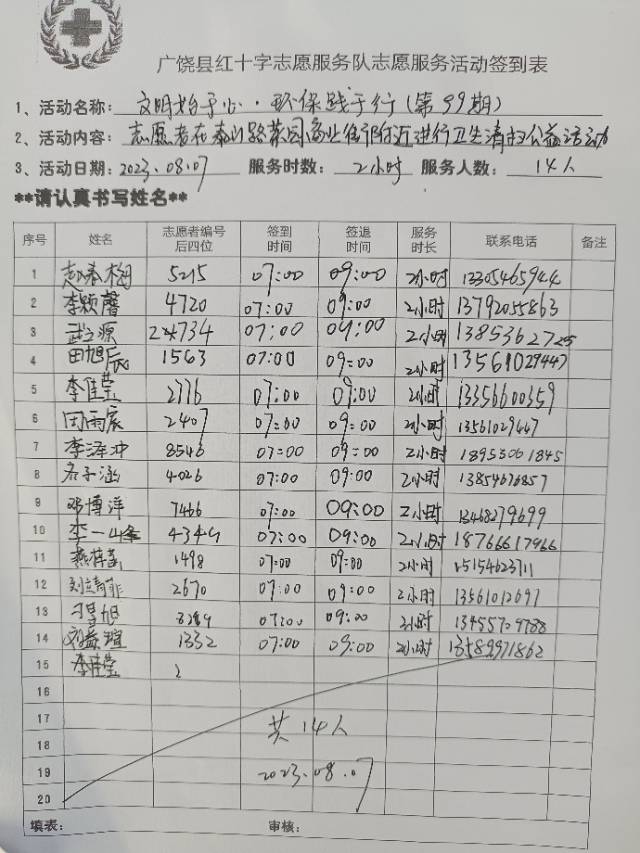 广饶县红十字志愿服务队志愿服务活动签到表
1、活动名称: 文明始于心·环保践于行(第99期)
2、活动内容: 志愿者在泰山路菜园商业街附近进行卫生清扫公益活动
3、活动日期: 2023.08.07 服务时数: 2小时 服务人数: 14人
**请认真书写姓名**
序号 姓名 志愿者编号后四位 签到时间 签退时间 服务时长 联系电话 备注
1 赵春梅 5215 07:00 09:00 2小时 13305465944
2 李颖馨 4720 07:00 09:00 2小时 13792055863
3 武立源 4734 07:00 09:00 2小时 13853627725
4 田旭辰 1563 07:00 09:00 2小时 13561029447
5 李佳莹 2776 07:00 09:00 2小时 13356600359
6 田雨宸 2407 07:00 09:00 2小时 13561029447
7 李泽冲 8546 07:00 09:00 2小时 18953061845
8 子涵 4026 07:00 09:00 2小时 13854676857
9 邓博洋 7466 07:00 09:00 2小时 13468279699
10 李一峰 4349 07:00 09:00 2小时 18766617966
11 1498 07:00 09:00 2小时 15154623711
12 刘靖菲 2670 07:00 09:00 2小时 13561012691
13 刁昱旭 8289 07:00 09:00 2小时 13455709788
14 1332 07:00 09:00 2小时 13589971862
15 李佳莹 2
16
17 共14人
18
19 2023.08.07
20
填表: 审核: